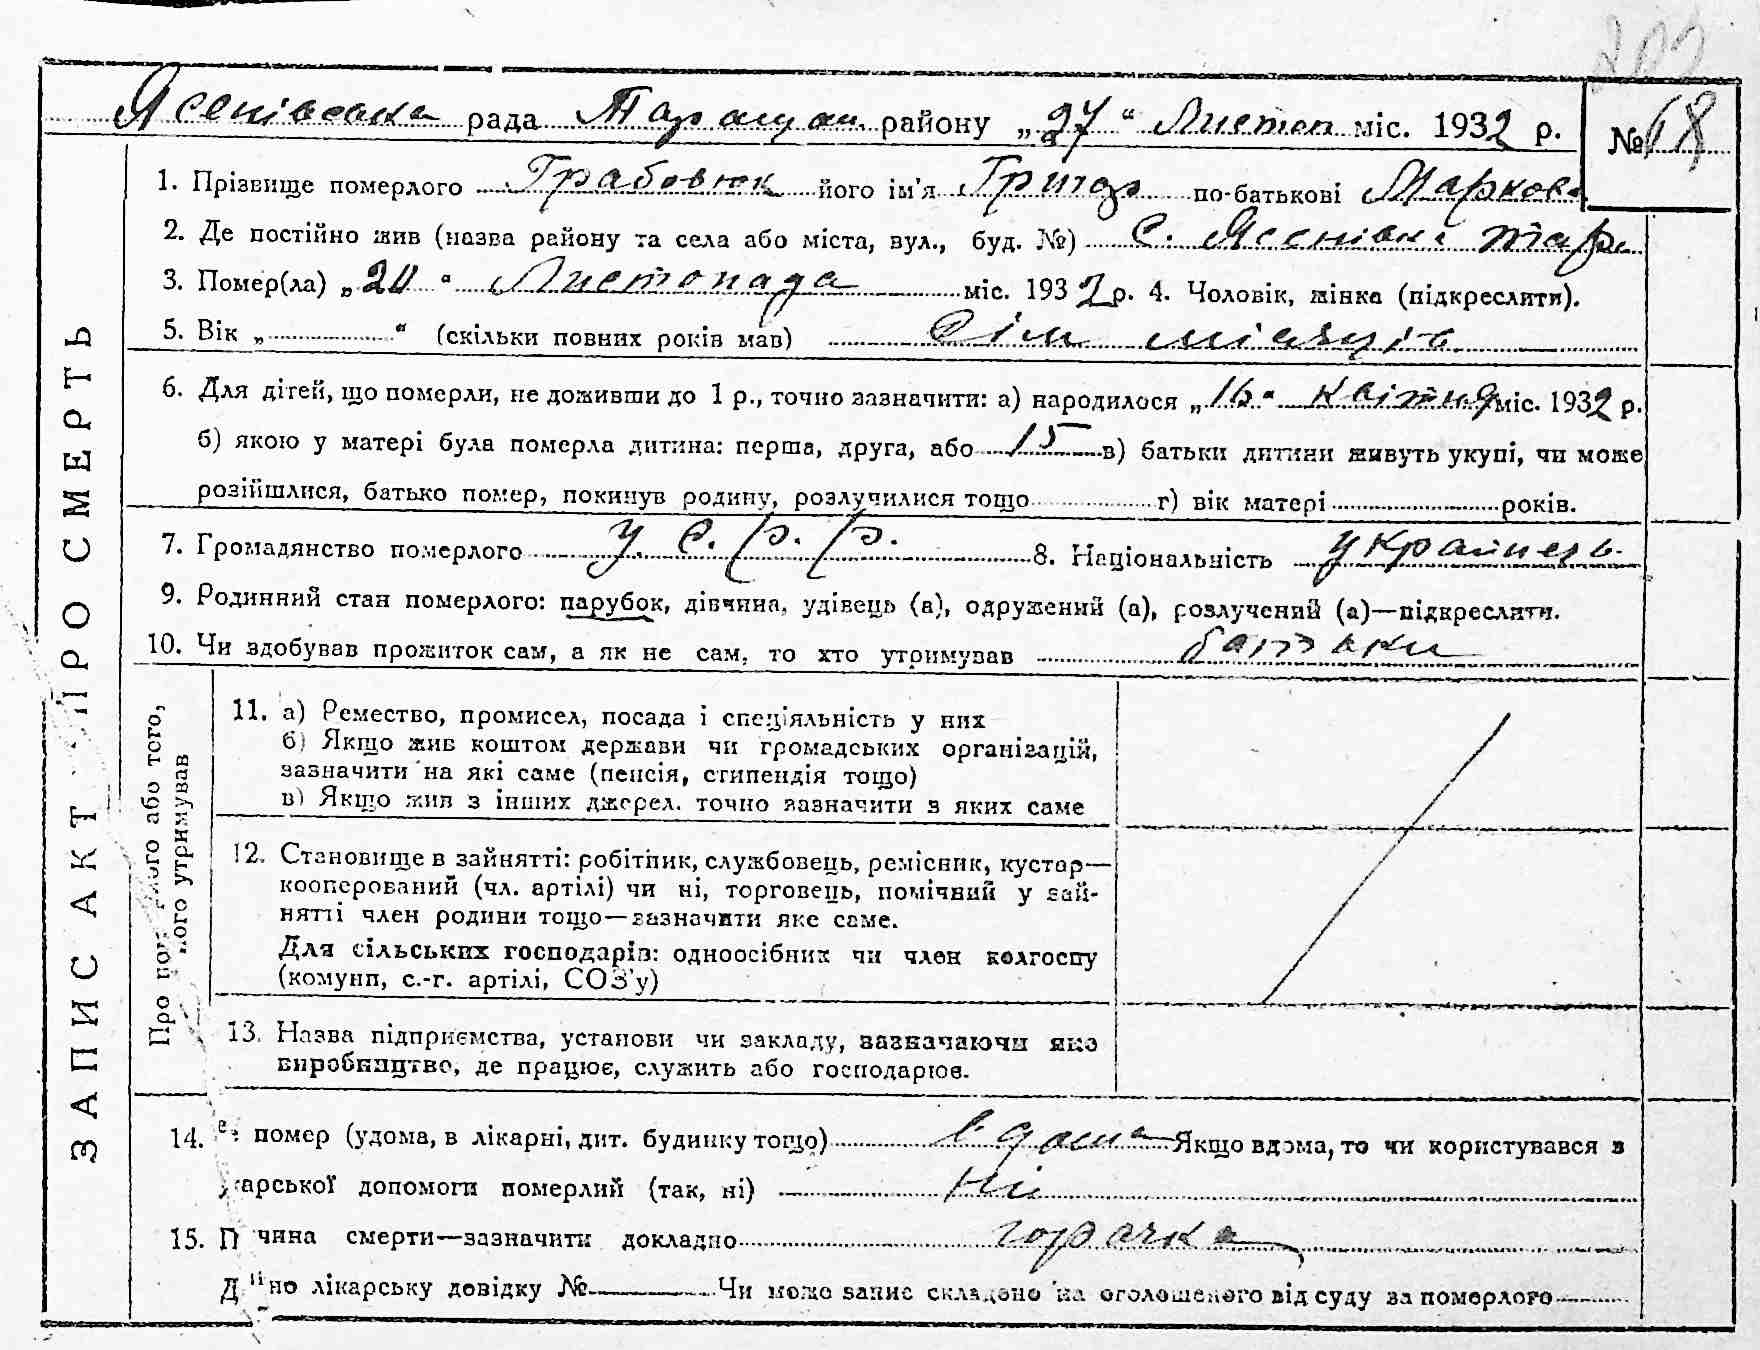 Ясенівська рада Таращан. району „27“ Листоп міс. 1932 р. №18
ЗАПИС АКТ ПРО СМЕРТЬ
1. Прізвище померлого Грабовюк його ім'я Григор по-батькові Марков
2. Де постійно жив (назва району та села або міста, вул., буд. №) с. Ясенівка Тар.
3. Помер(ла) „20“ Листопада міс. 1932 р. 4. Чоловік, жінка (підкреслити).
5. Вік „ “ (скільки повних років мав) Сім місяців
6. Для дітей, що померли, не доживши до 1 р., точно зазначити: а) народилося „16“ квітня міс. 1932 р.
б) якою у матері була померла дитина: перша, друга, або 15 в) батьки дитини живуть укупі, чи може
розійшлися, батько помер, покинув родину, розлучилися тощо г) вік матері років.
7. Громадянство померлого У.С.Р.Р. 8. Національність українець
9. Родинний стан померлого: парубок, дівчина, удівець (а), одружений (а), розлучений (а)—підкреслити.
10. Чи здобував прожиток сам, а як не сам, то хто утримував батьки
11. а) Ремество, промисел, посада і спеціяльність у них
б) Якщо жив коштом держави чи громадських організацій,
зазначити на які саме (пенсія, стипендія тощо)
в) Якщо жив з інших джерел, точно зазначити з яких саме
12. Становище в зайнятті: робітник, службовець, ремісник, кустар—
кооперований (чл. артілі) чи ні, торговець, помічний у зай-
нятті член родини тощо—зазначити яке саме.
Для сільських господарів: одноосібник чи член колгоспу
(комуни, с.-г. артілі, СОЗ'у)
13. Назва підприємства, установи чи закладу, зазначаючи яке
виробництво, де працює, служить або господарює.
14. помер (удома, в лікарні, дит. будинку тощо) вдома Якщо вдома, то чи користувався з
карської допомоги померлий (так, ні) Ні
15. П чина смерти—зазначити докладно горачка
Д но лікарську довідку № Чи може запис складено на оголошеного від суду за померлого